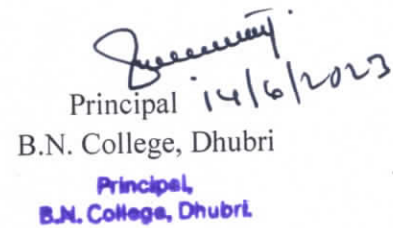 Principal 14/6/2023
B.N. College, Dhubri
Principal,
B.N. College, Dhubri.